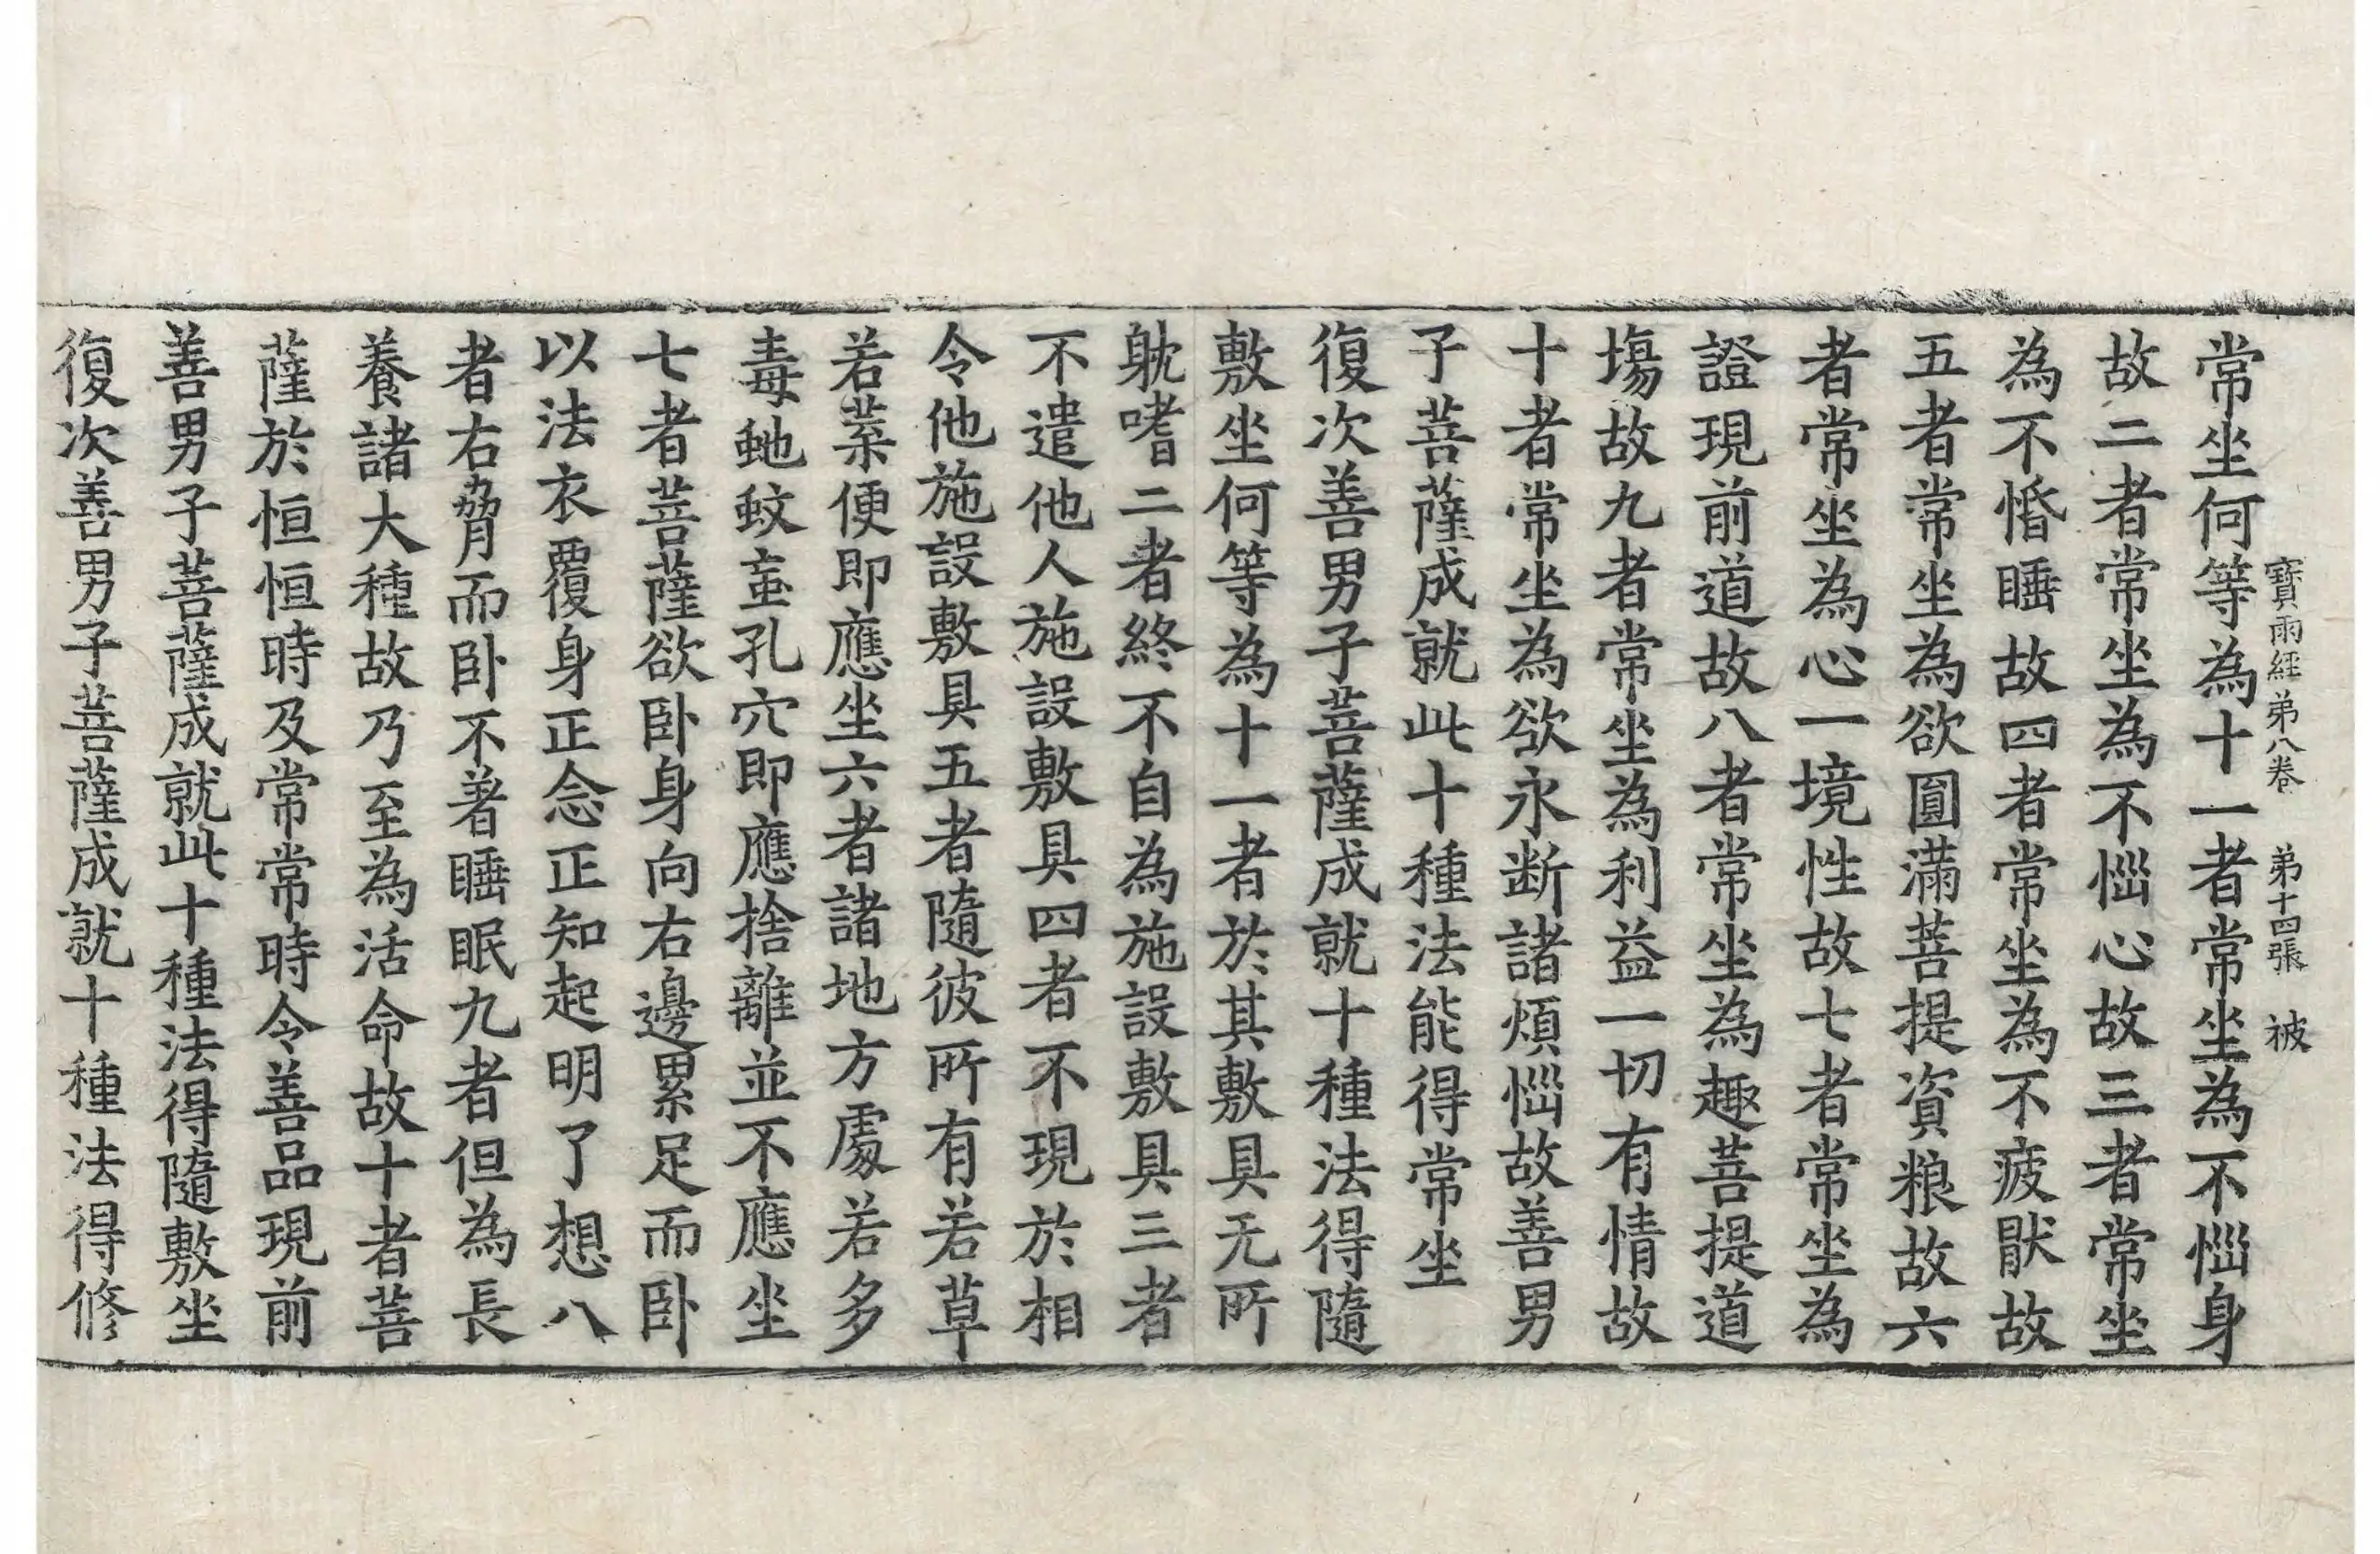 寶雨經弟八卷 弟十四張 被
常坐何等為十一者常坐為不惱身
故二者常坐為不惱心故三者常坐
為不惛睡故四者常坐為不疲厭故
五者常坐為欲圓滿菩提資粮故六
者常坐為心一境性故七者常坐為
證現前道故八者常坐為趣菩提道
場故九者常坐為利益一切有情故
十者常坐為欲永断諸煩惱故善男
子菩薩成就此十種法能得常坐
復次善男子菩薩成就十種法得隨
敷坐何等為十一者於其敷具无所
躭嗜二者終不自為施設敷具三者
不遣他人施設敷具四者不現於相
令他施設敷具五者隨彼所有若草
若葉便即應坐六者諸地方處若多
毒虵蚊䖟孔穴即應捨離並不應坐
七者菩薩欲卧身向右邊累足而卧
以法衣覆身正念正知起明了想八
者右脅而卧不著睡眠九者但為長
養諸大種故乃至為活命故十者菩
薩於恒恒時及常常時令善品現前
善男子菩薩成就此十種法得隨敷坐
復次善男子菩薩成就十種法得修